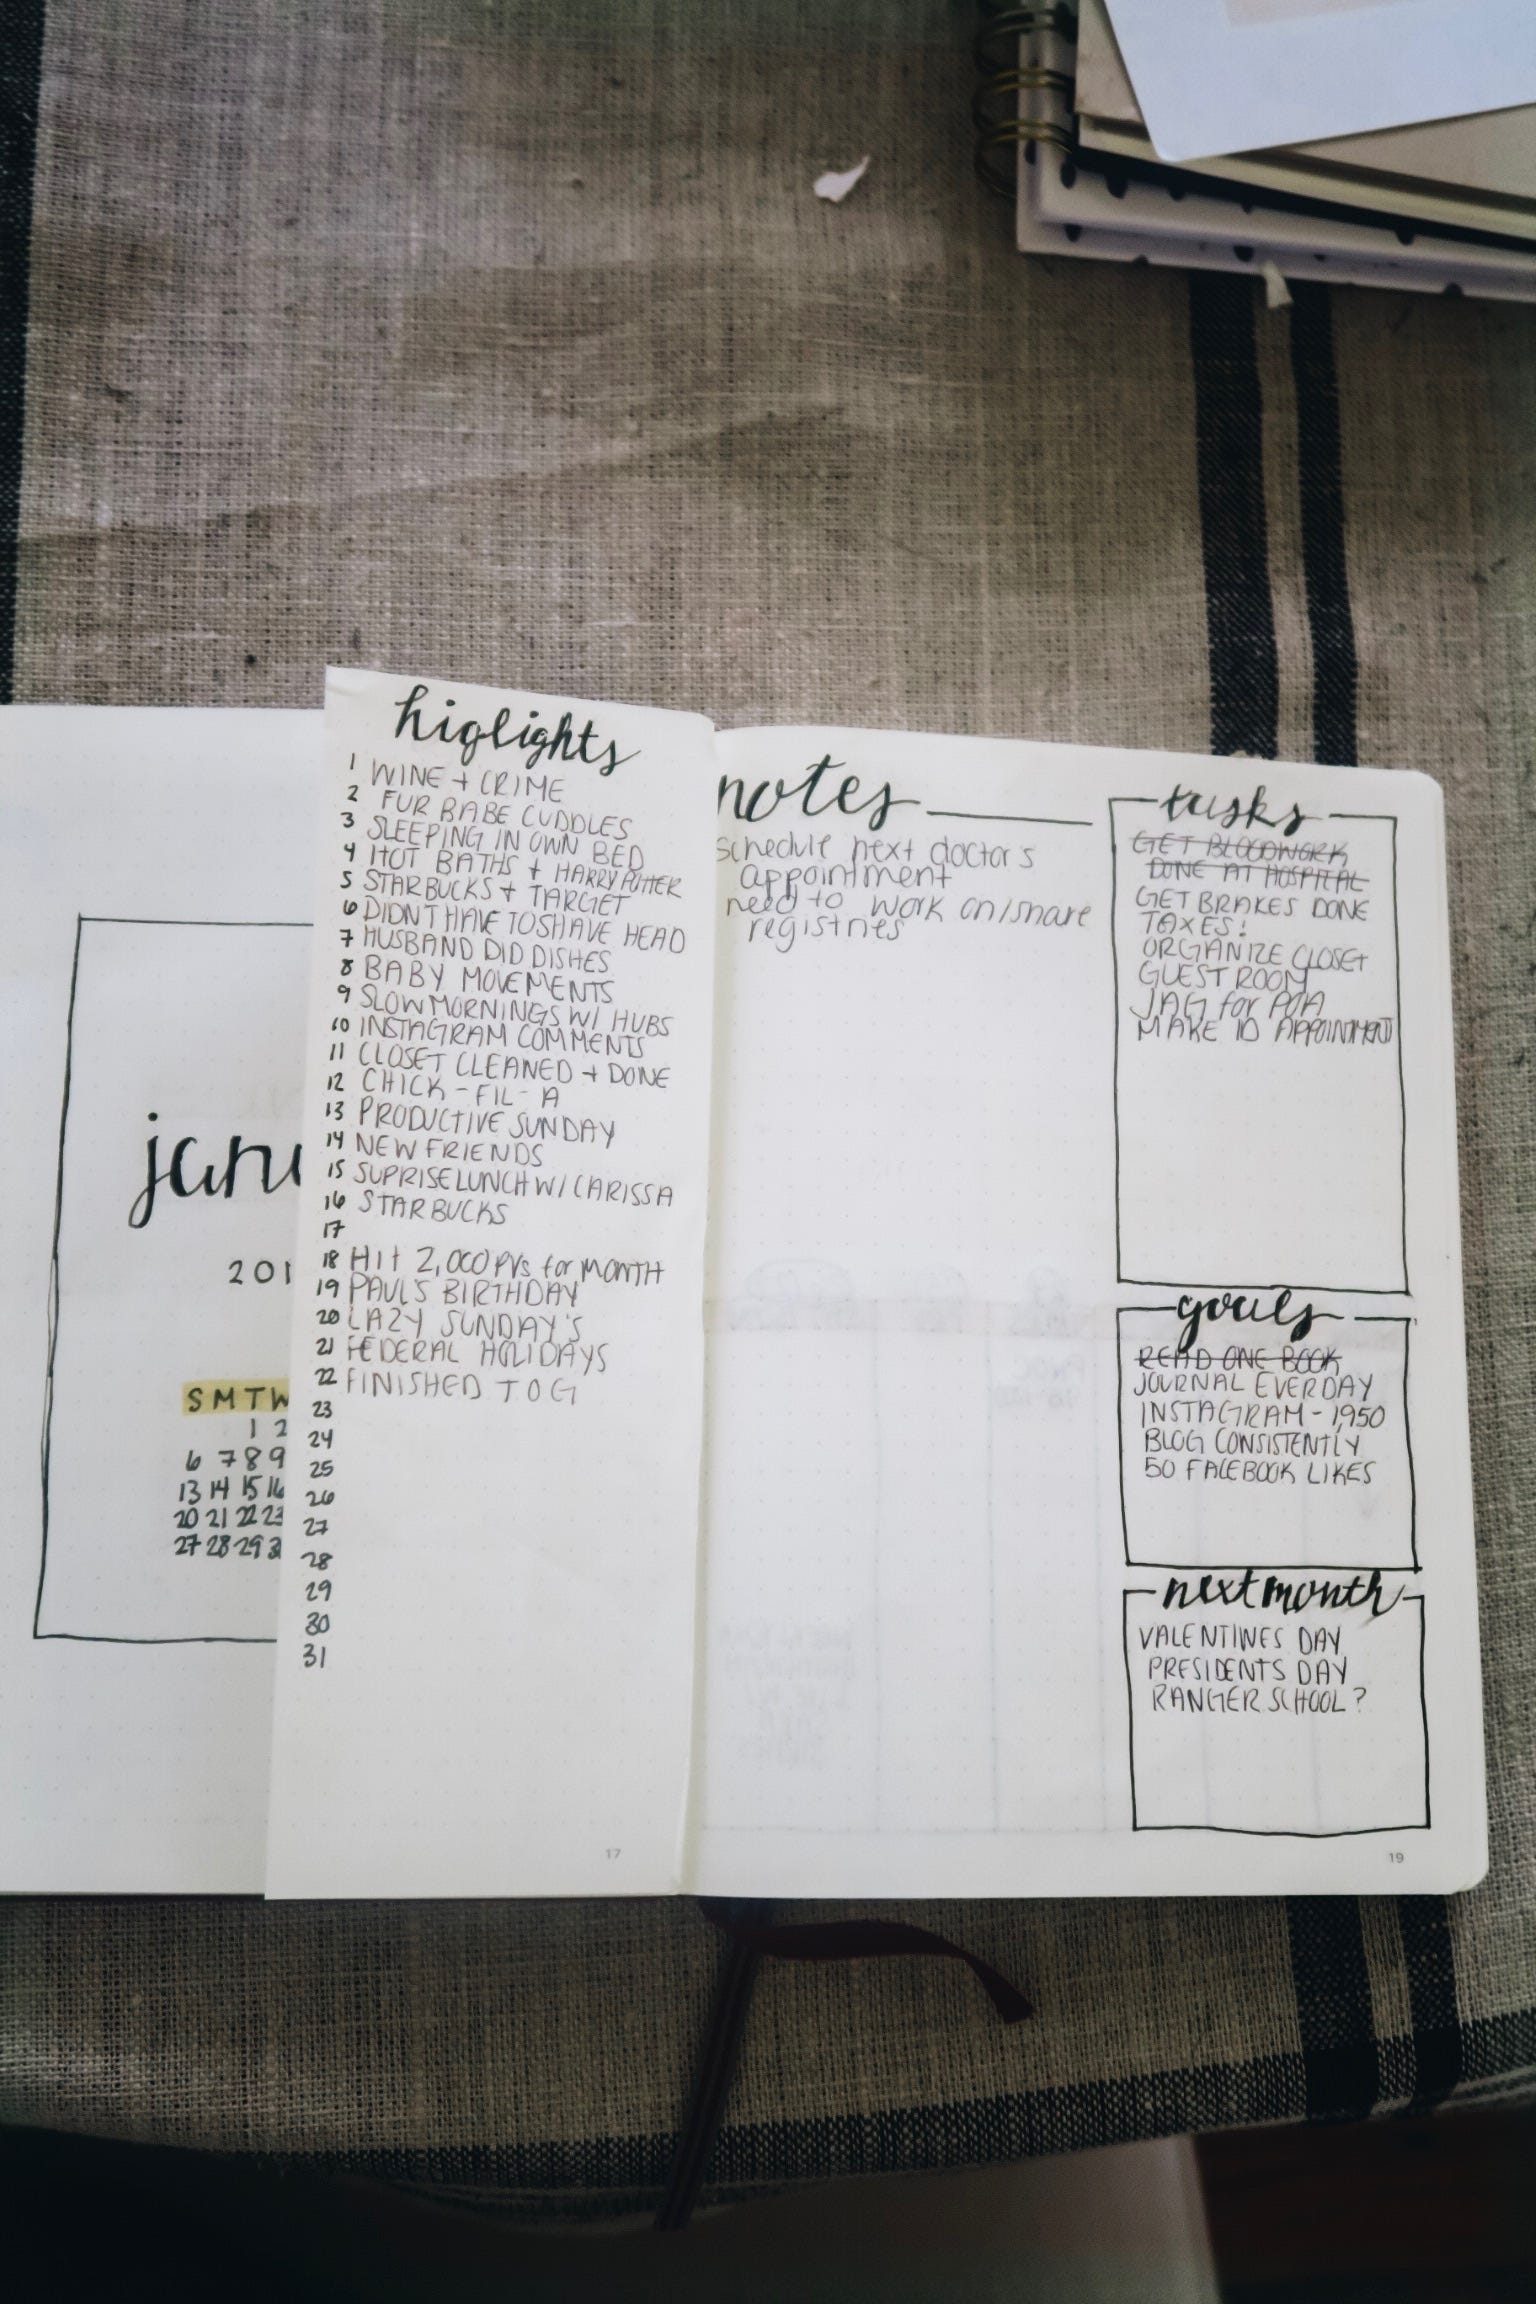 janu
201
S M T W
1 2
6 7 8 9
13 14 15 16
20 21 22 23
27 28 29 3
higlights
1 WINE + CRIME
2 FUR BABE CUDDLES
3 SLEEPING IN OWN BED
4 HOT BATHS + HARRY POTTER
5 STARBUCKS + TARGET
6 DIDNT HAVE TO SHAVE HEAD
7 HUSBAND DID DISHES
8 BABY MOVEMENTS
9 SLOW MORNINGS W/ HUBS
10 INSTAGRAM COMMENTS
11 CLOSET CLEANED + DONE
12 CHICK-FIL-A
13 PRODUCTIVE SUNDAY
14 NEW FRIENDS
15 SUPRISE LUNCH W/ CARISSA
16 STARBUCKS
17
18 HIT 2,000 PVs for MONTH
19 PAUL'S BIRTHDAY
20 LAZY SUNDAY'S
21 FEDERAL HOLIDAYS
22 FINISHED TOG
23
24
25
26
27
28
29
30
31
17
notes
schedule next doctors
appointment
need to work on/share
registries
tasks
GET BLOODWORK
DONE AT HOSPITAL
GET BRAKES DONE
TAXES!
ORGANIZE CLOSET
GUEST ROOM
JAG for POA
MAKE ID APPOINTMENT
goals
READ ONE BOOK
JOURNAL EVERDAY
INSTAGRAM - 1,950
BLOG CONSISTENTLY
50 FACEBOOK LIKES
next month
VALENTINES DAY
PRESIDENTS DAY
RANGER SCHOOL?
19